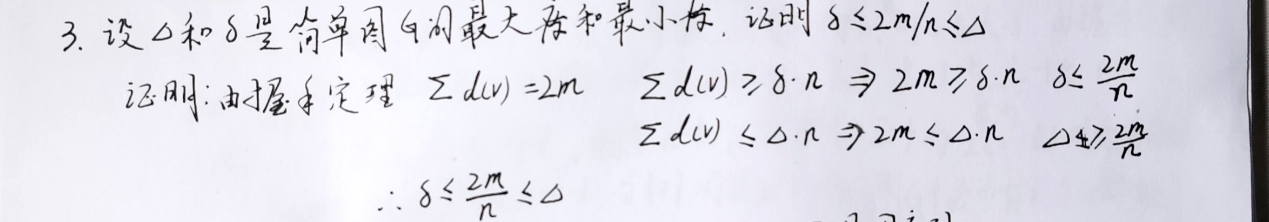 3. 设△和δ是简单图G的最大度和最小度. 证明 δ≤2m/n≤△
证明:由握手定理 Σd(v)=2m Σd(v)≥δ·n ⇒ 2m≥δ·n δ≤2m/n
Σd(v)≤△·n ⇒ 2m≤△·n △≥2m/n
∴ δ≤2m/n≤△